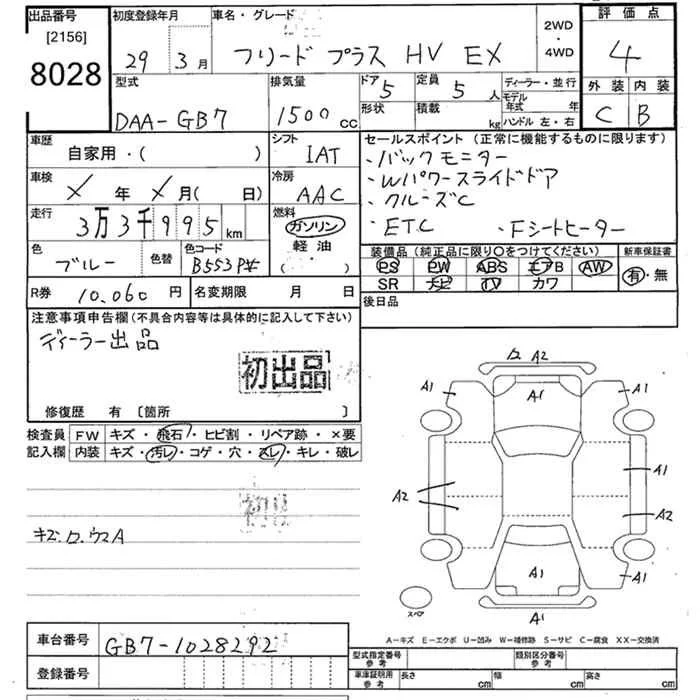 出品番号
[2156]
8028
初度登録年月
29 3月
車名・グレード
フリード プラス HV EX
2WD
・
4WD
評価点
4
外装 内装
C B
型式
DAA-GB7
排気量
1500 cc
ドア 5
定員 5 人
形状
積載 kg
ディーラー・並行
モデル年式 年
ハンドル 左・右
車歴
自家用・( )
シフト
IAT
車検
X年 X月( 日)
冷房
AAC
走行
3万3千995km
燃料
ガソリン
軽油
( ・ )
色
ブルー
色替
色コード
B553P
R券 10,060円
名変期限 月 日
セールスポイント(正常に機能するものに限ります)
・バックモニター
・Wパワースライドドア
・クルーズC
・ETC ・Fシートヒーター
装備品(純正品に限り○をつけてください)
PS PW ABS エアB AW
SR ナビ TV カワ
新車保証書
有・無
後日品
注意事項申告欄(不具合内容等は具体的に記入して下さい)
ディーラー出品
初出品
修復歴 有 〔箇所 〕
検査員記入欄
FW キズ・飛石・ヒビ割・リペア跡・×要
内装 キズ・汚レ・コゲ・穴・スレ・キレ・破レ
キズ.ワ.ウスA
ワ A2
A1 A1 A1
A1
A2 A2
A1 A1
A1
スペア
A-キズ E-エクボ U-凹み W-補修跡 S-サビ C-腐食 XX-交換済
車台番号 GB7-1028292
登録番号
型式指定番号 参考
類別区分番号 参考
車庫証明用 参考
長さ cm 幅 cm 高さ cm